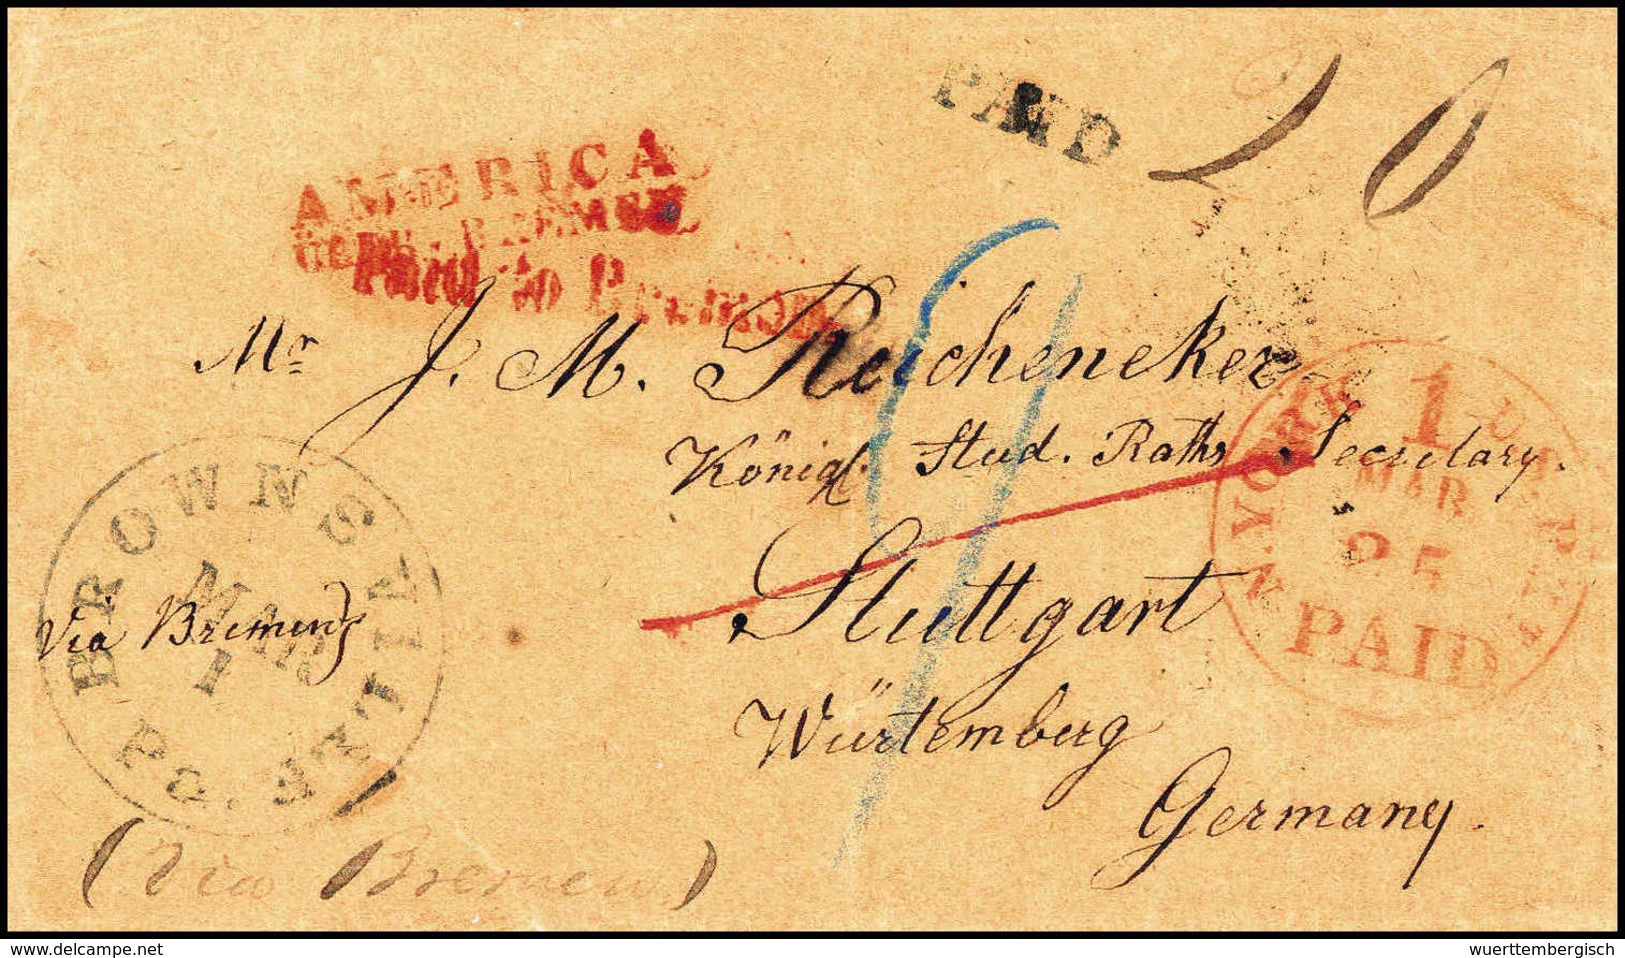 PAID 20
AMERICA
ÜBER BREMEN
Paid to Bremen
Mr J. M. Reicheneker
Königl. Stud. Raths Secretary.
Stuttgart
Würtemberg
Germany.
BROWNSVILLE Pa.
MAR
1
Via Bremen
(Via Bremen)
N. YORK U.S. PKT
1
MAR
25
PAID
delcampe.net
wuerttembergisch